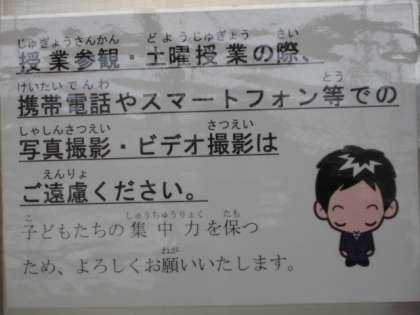 じゅぎょうさんかん どようじゅぎょう さい
授業参観・土曜授業の際、
けいたいでんわ とう
携帯電話やスマートフォン等での
しゃしんさつえい さつえい
写真撮影・ビデオ撮影は
えんりょ
ご遠慮ください。
こ しゅうちゅうりょく たも
子どもたちの集中力を保つ
ねが
ため、よろしくお願いいたします。